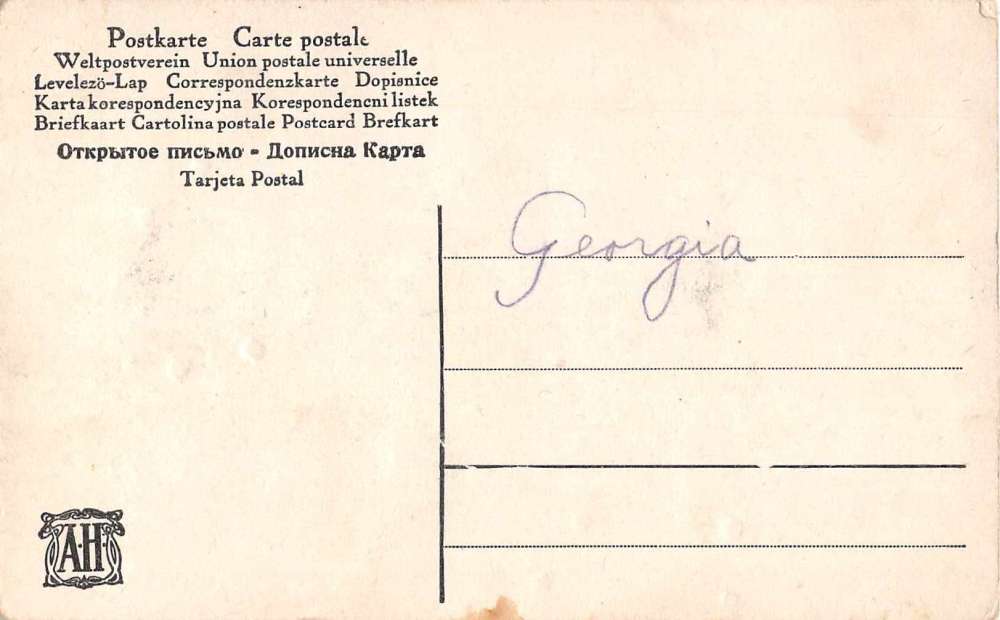 Postkarte Carte postale
Weltpostverein Union postale universelle
Levelezö-Lap Correspondenzkarte Dopisnice
Karta korespondencyjna Korespondencni listek
Briefkaart Cartolina postale Postcard Brefkart
Открытое письмо - Дописна Карта
Tarjeta Postal
Georgia
A·H·